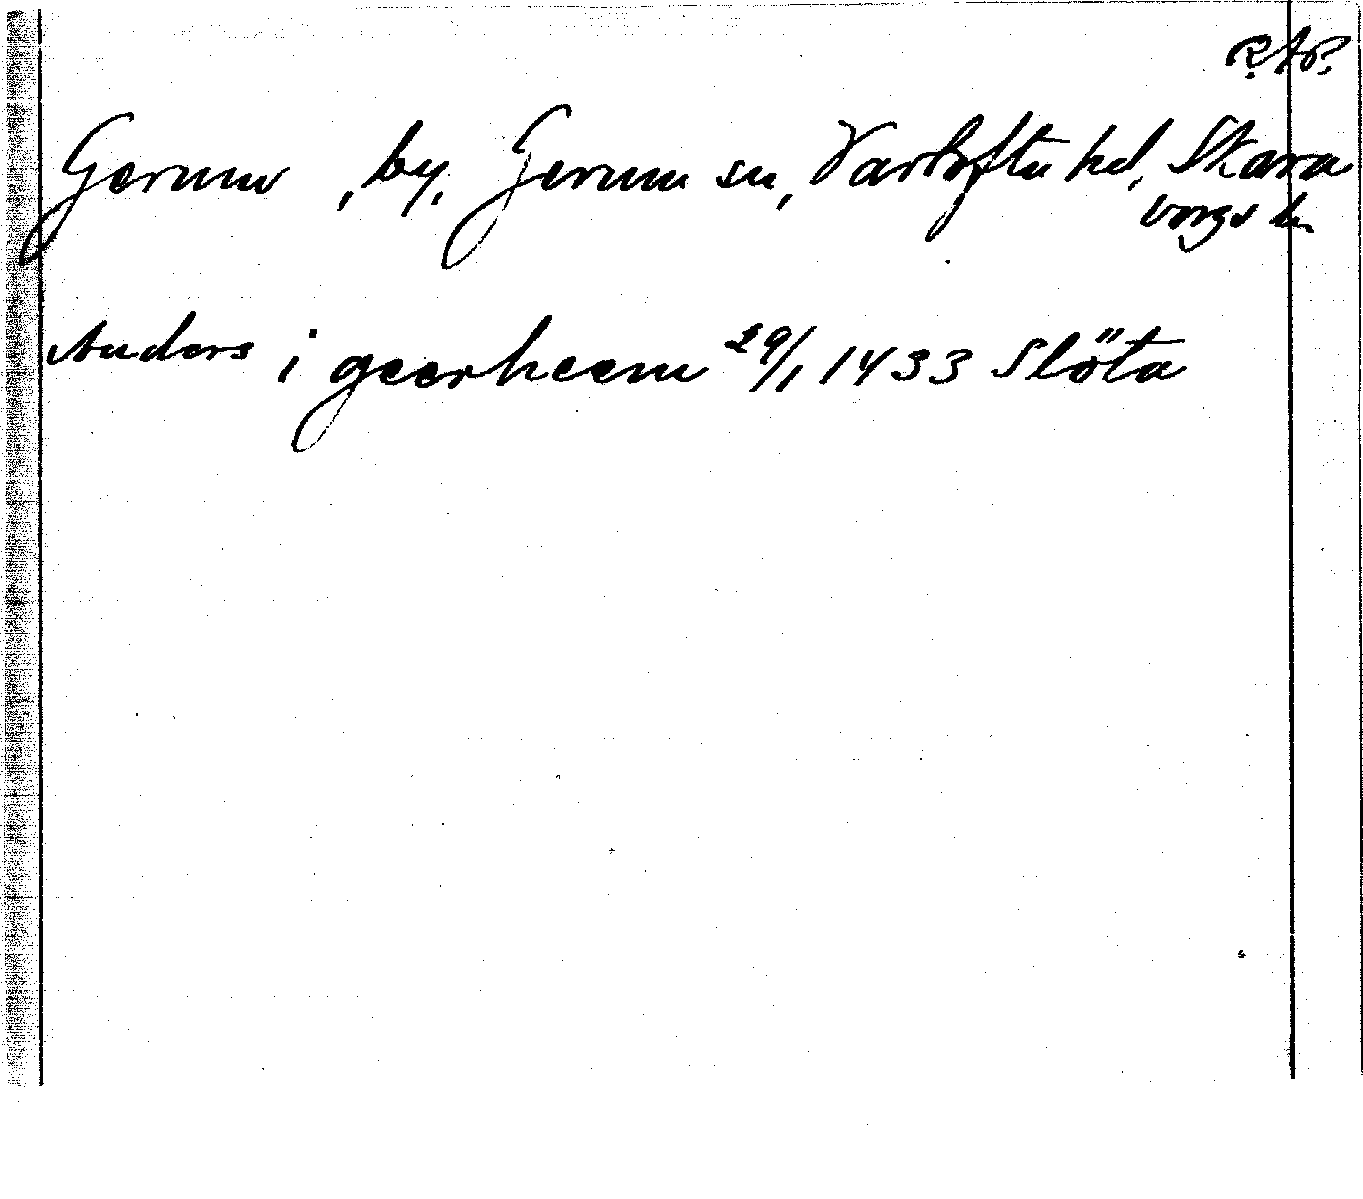 R.A.P.
Gerum, by, Gerum sn, Vartofta hd, Skara
borgs l.
Anders i geerheem 29/1 1433 Slöta